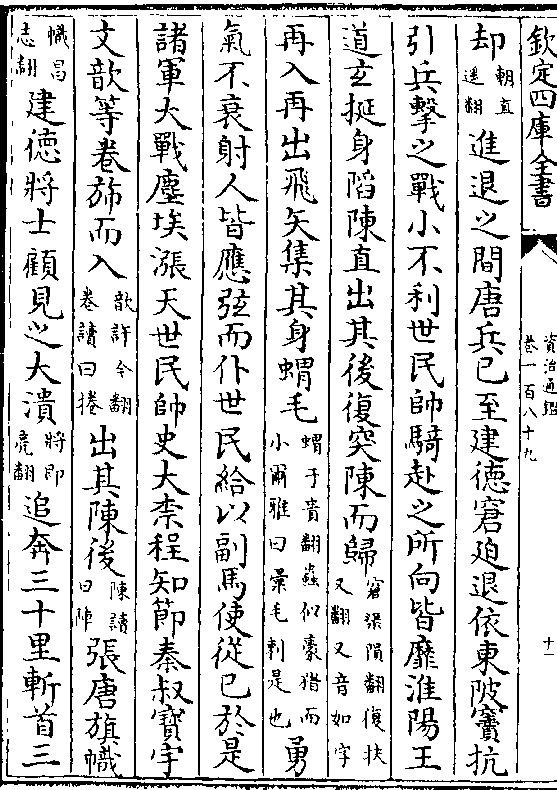 欽定四庫全書
資治通鑑
卷一百八十九
十一
却朝直遥翻進退之間唐兵已至建德窘迫退依東陂竇抗
引兵擊之戰小不利世民帥騎赴之所向皆靡淮陽王
道玄挺身䧟陳直出其後復突陳而歸窘渠隕翻復扶又翻又音如字
再入再出飛矢集其身蝟毛蝟于貴翻蟲似豪猪而小爾雅曰彚毛刺是也勇
氣不衰射人皆應弦而仆世民給以副馬使從已於是
諸軍大戰塵埃漲天世民帥史大柰程知節秦叔寶宇
文歆等卷斾而入歆許今翻卷讀曰捲出其陳後陳讀曰陣張唐旗幟
幟昌志翻建德將士顧見之大潰將即亮翻追奔三十里斬首三